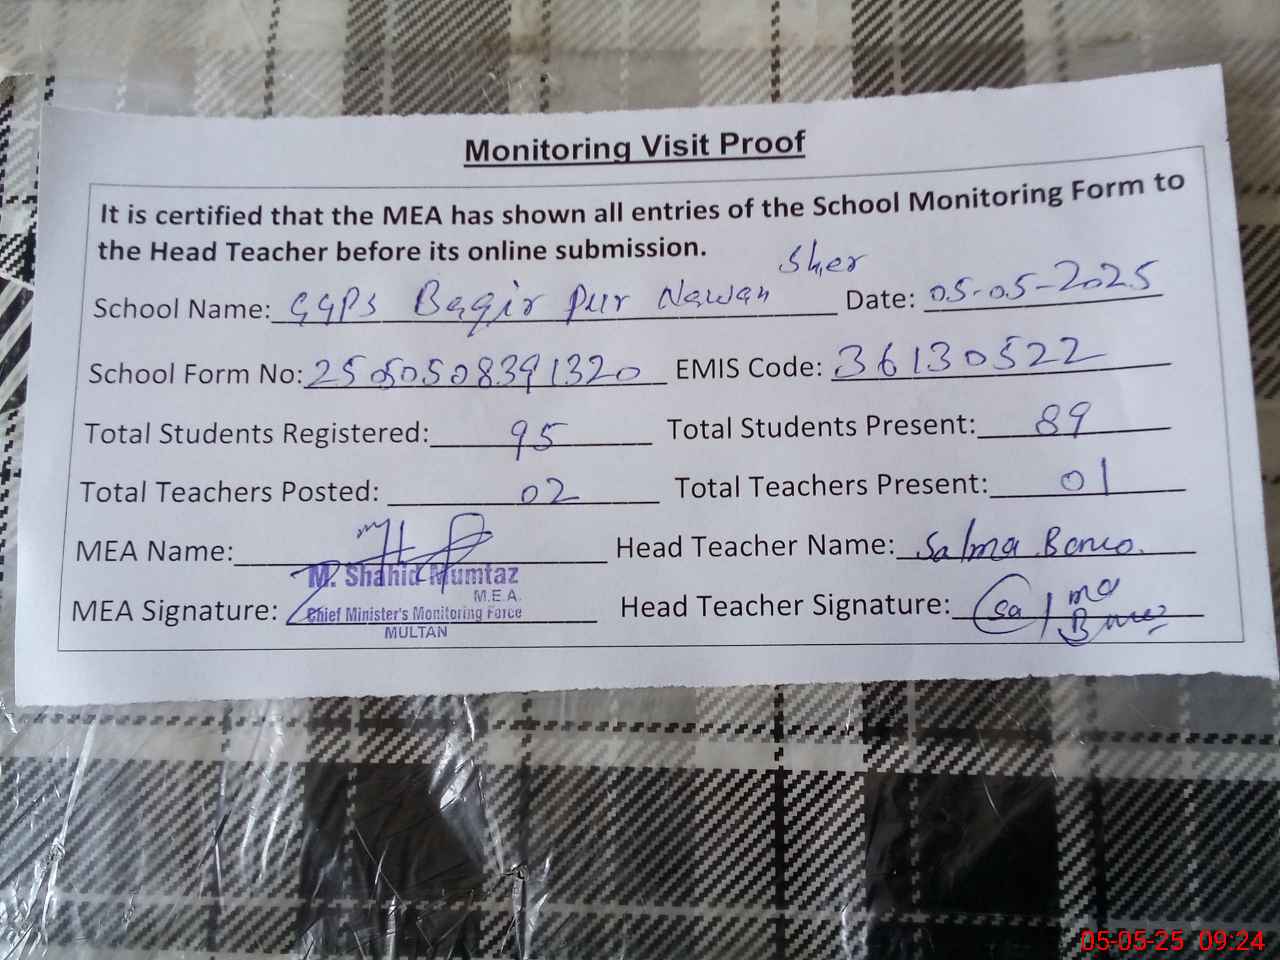 Monitoring Visit Proof
It is certified that the MEA has shown all entries of the School Monitoring Form to
the Head Teacher before its online submission.
School Name: GGPS Baqir Pur Nawan Sher Date: 05-05-2025
School Form No: 25050508391320 EMIS Code: 36130522
Total Students Registered: 95 Total Students Present: 89
Total Teachers Posted: 02 Total Teachers Present: 01
MEA Name: Head Teacher Name: Salma Bano.
M. Shahid Mumtaz
M.E.A.
MEA Signature: Chief Minister's Monitoring Force Head Teacher Signature: Salma Bano
MULTAN
05-05-25 09:24